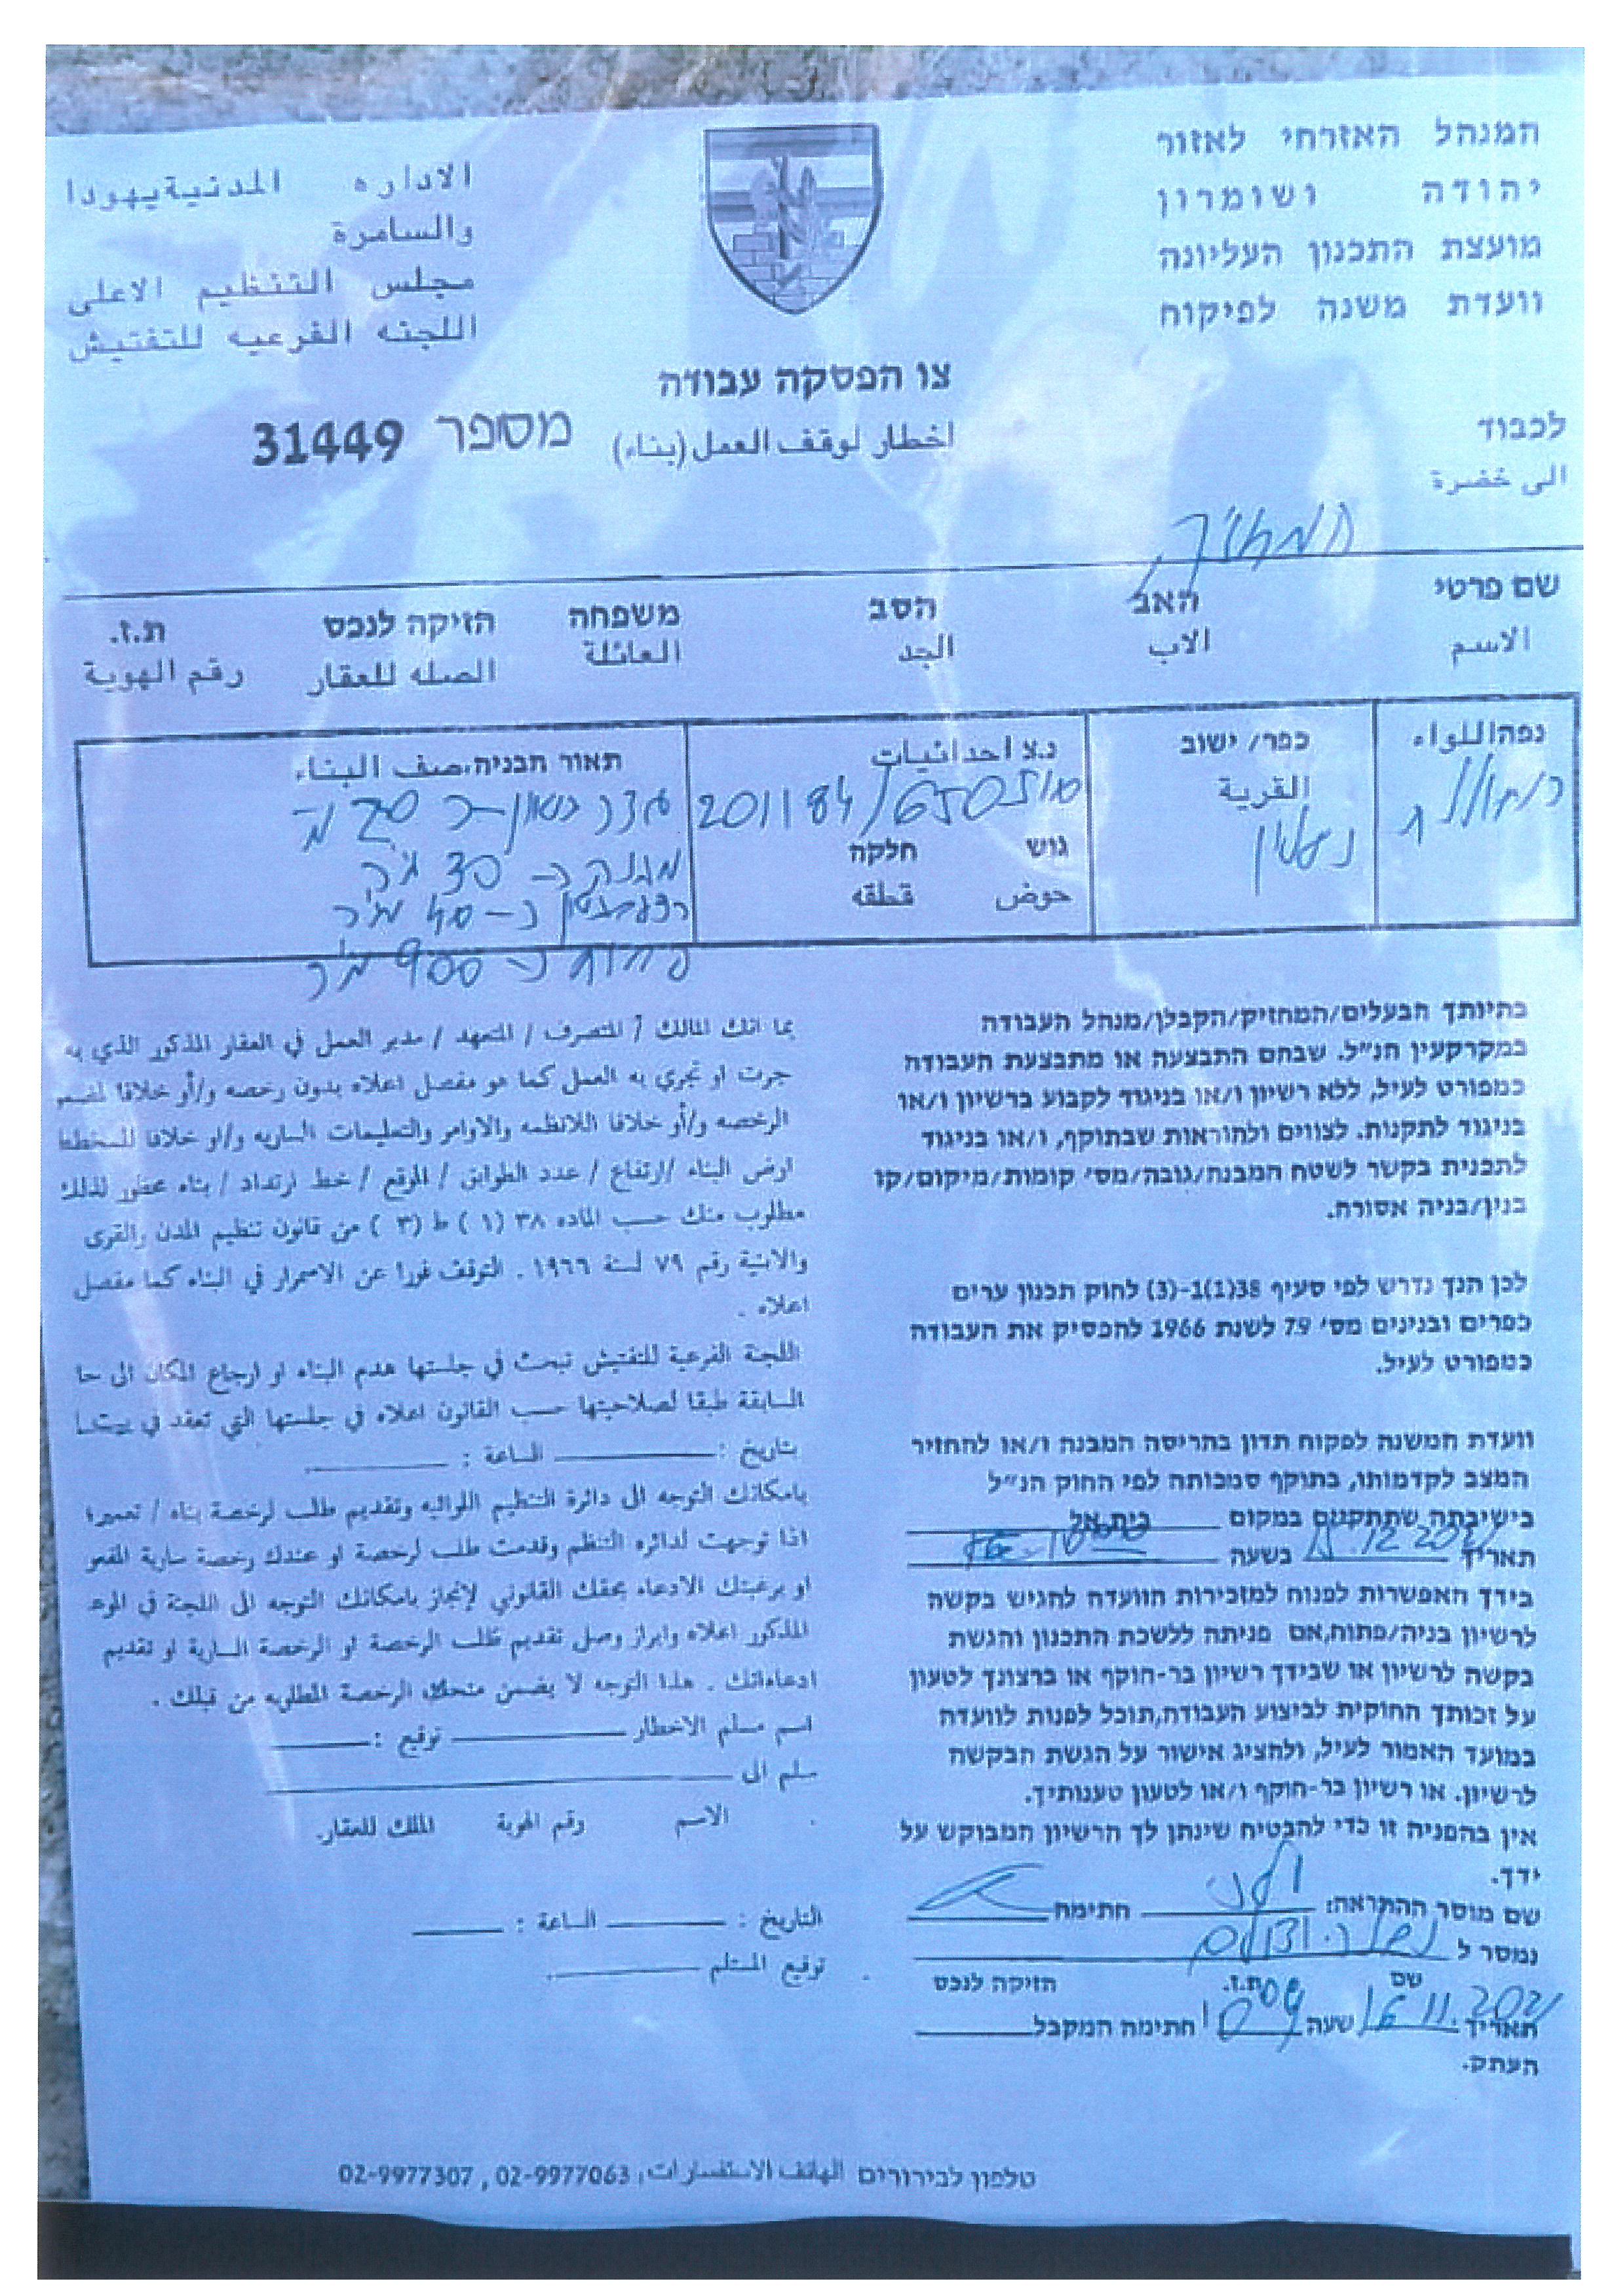 המנהל האזרחי לאזור
יהודה ושומרון
מועצת התכנון העליונה
וועדת משנה לפיקוח
الاداره المدنية يهودا
والسامرة
مجلس التنظيم الاعلى
اللجنه الفرعيه للتفتيش
צו הפסקה עבודה
اخطار لوقف العمل (بناء) מספר 31449
לכבוד
الى خضرة
המחזיק
שם פרטי האב הסב משפחה הזיקה לנכס ת.ז.
الاسم الاب الجد العائلة الصله للعقار رقم الهوية
נפה اللواء כפר/ ישוב נ.צ احداثيات תאור הבניה، صف البناء
רמאללה القرية 201184/650
נעלין גוש חלקה
حوض قطعه
גדר
כ- 40 מ"ר
כ- 900 מ"ר
בהיותך הבעלים/המחזיק/הקבלן/מנהל העבודה
במקרקעין הנ״ל. שבהם התבצעה או מתבצעת העבודה
כמפורט לעיל, ללא רשיון ו/או בניגוד לקבוע ברשיון ו/או
בניגוד לתקנות. לצווים ולהוראות שבתוקף, ו/או בניגוד
לתכנית בקשר לשטח המבנה/גובה/מס׳ קומות/מיקום/קו
בנין/בניה אסורה.
לכן הנך נדרש לפי סעיף 38(1)1-(3) לחוק תכנון ערים
כפרים ובנינים מס׳ 79 לשנת 1966 להפסיק את העבודה
כמפורט לעיל.
וועדת המשנה לפקוח תדון בהריסה המבנה ו/או להחזיר
המצב לקדמותו, בתוקף סמכותה לפי החוק הנ״ל
בישיבתה שתתקיים במקום בית אל
תאריך .12.202 בשעה
בידך האפשרות לפנות למזכירות הוועדה להגיש בקשה
לרשיון בניה/פתוח,אם פניתה ללשכת התכנון והגשת
בקשה לרשיון או שבידך רשיון בר-תוקף או ברצונך לטעון
על זכותך החוקית לביצוע העבודה,תוכל לפנות לוועדה
במועד האמור לעיל, ולהציג אישור על הגשת הבקשה
לרשיון. או רשיון בר-תוקף ו/או לטעון טענותיך.
אין בהפניה זו כדי להבטיח שינתן לך הרשיון המבוקש על
ידך.
שם מוסר ההתראה: חתימה
נמסר ל
שם ת.ז. הזיקה לנכס
תאריך 16.11.2021 שעה חתימה המקבל
העתק.
بما انك المالك / المتصرف / المتعهد / مدير العمل في العقار المذكور الذي به
جرت او تجري به العمل كما هو مفصل اعلاه بدون رخصه و/أو خلافا لنسم
الرخصه و/أو خلافا للانظمه والاوامر والتعليمات الساريه و/او خلافا للمخطط
ارض البناء /ارتفاع / عدد الطوابق / الموقع / خط ارتداد / بناء محظور لذلك
مطلوب منك حسب الماده ٣٨ (١) ط (٣) من قانون تنظيم المدن والقرى
والابنية رقم ٧٩ لسنة ١٩٦٦. التوقف فورا عن الاسمرار في البناء كما مفصل
اعلاه .
اللجنة الفرعية للتفتيش تبحث في جلستها هدم البناء او ارجاع المكان الى حا
السابقة طبقا لصلاحيتها حسب القانون اعلاه في جلستها التي تعقد في
بتاريخ : الساعة :
بامكانك التوجه الى دائرة التنظيم اللوائيه وتقديم طلب لرخصة بناء / تعمير؛
اذا توجهت لدائره التنظم وقدمت طلب لرخصة او عندك رخصة سارية المفعو
او برغبتك الادعاء بحقك القانوني لإنجاز بامكانك التوجه الى اللجنة في الموعد
المذكور اعلاه وابراز وصل تقديم طلب الرخصة او الرخصة السارية او تقديم
ادعاءاتك . هذا التوجه لا يضمن منحك الرخصة المطلوبه من قبلك .
اسم مسلم الاخطار توقيع :
سلم الى
الاسم رقم الهوية الملك للعقار.
التاريخ : الساعة :
توقيع المستلم
טלפון לבירורים الهاتف الاستفسارات: 02-9977063 , 02-9977307